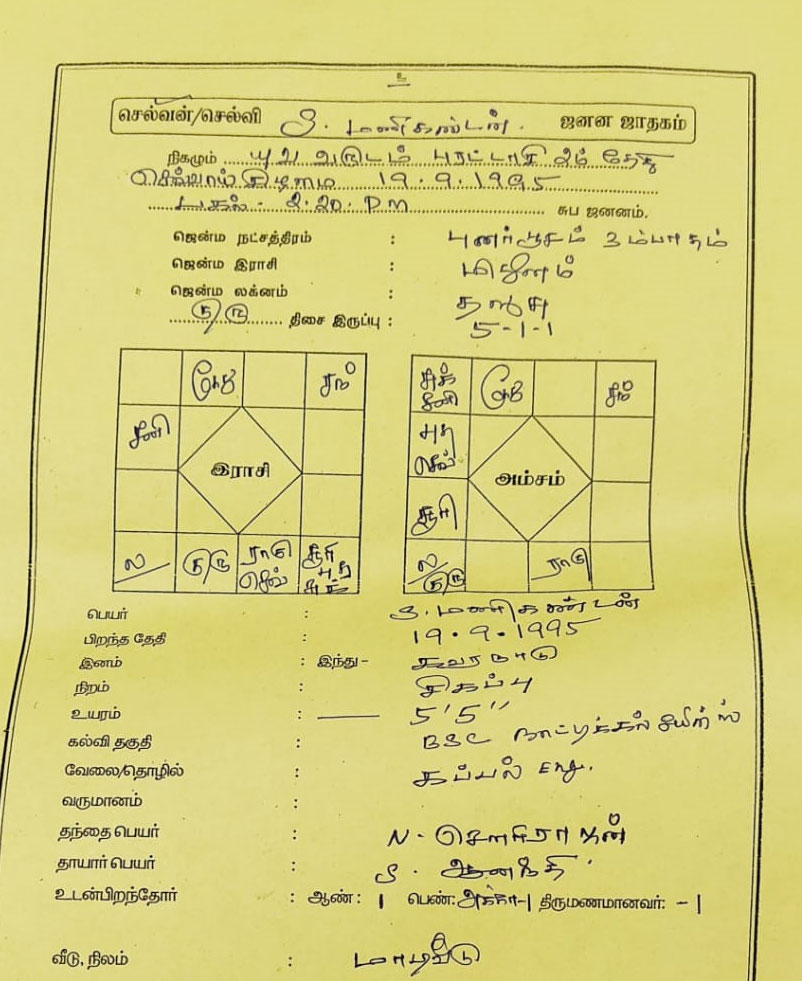 உ
செல்வன்/செல்வி S. மணிகண்டன். ஜனன ஜாதகம்
நிகழும் யுவ வருடம் புரட்டாசி 2ம் தேதி
செவ்வாய்கிழமை 19.9.1995
பகல். 2.20. PM சுப ஜனனம்.
ஜென்ம நட்சத்திரம் : புனர்பூசம் 3ம்பாதம்
ஜென்ம இராசி : மிதுனம்
ஜென்ம லக்னம் : தனுசு
குரு திசை இருப்பு : 5-1-1
கேது சந்
சனி
இராசி
ல/ குரு ராகு செவ் சூரி புத சுக்
சுக் சனி கேது சந்
புத செவ்
சூரி
அம்சம்
ல/ குரு ராகு
பெயர் : S. மணிகண்டன்
பிறந்த தேதி : 19.9.1995
இனம் : இந்து-
நிறம் : சிகப்பு
உயரம் : 5'5"
கல்வி தகுதி : BSC நாட்டிக்கல் சயின்ஸ்
வேலை/தொழில் : கப்பல் Eng.
வருமானம் :
தந்தை பெயர் : N.
தாயார் பெயர் : S. ஆனந்தி.
உடன்பிறந்தோர் : ஆண் : 1 பெண்: அக்கா-1 திருமணமானவர்: - 1
வீடு, நிலம் : மாடிவீடு